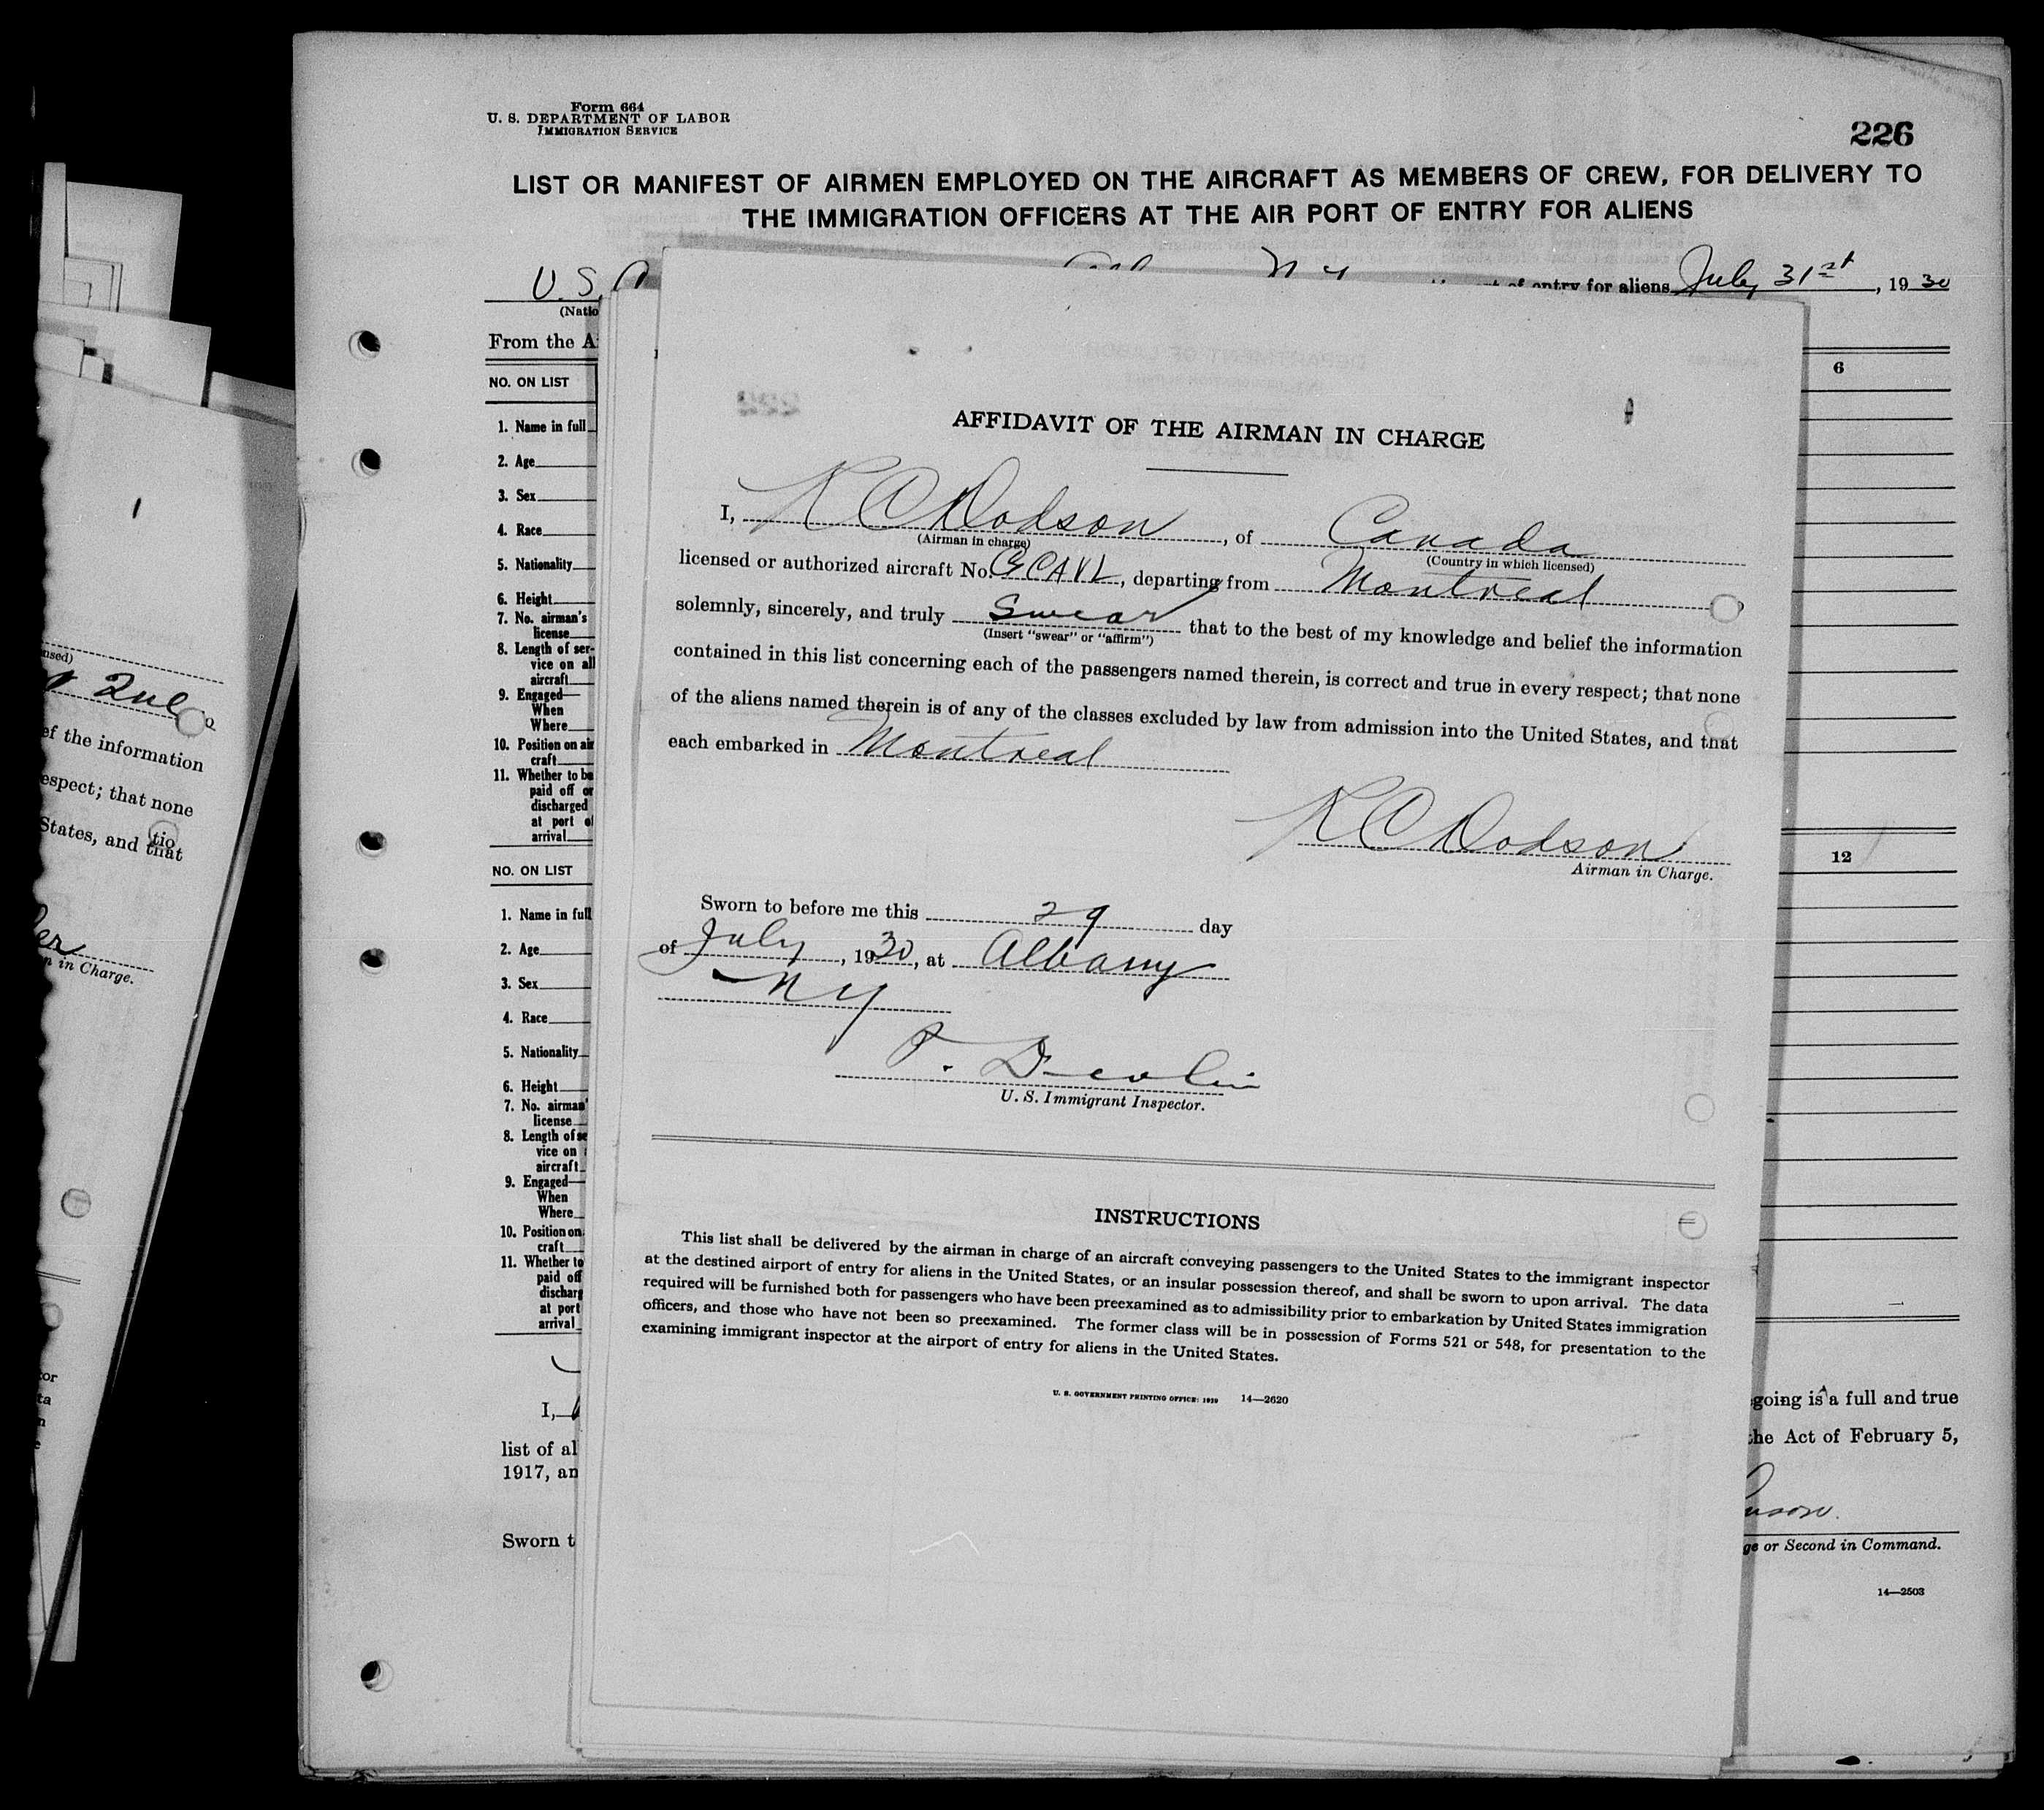 Form 664
U. S. DEPARTMENT OF LABOR
IMMIGRATION SERVICE
226
LIST OR MANIFEST OF AIRMEN EMPLOYED ON THE AIRCRAFT AS MEMBERS OF CREW, FOR DELIVERY TO
THE IMMIGRATION OFFICERS AT THE AIR PORT OF ENTRY FOR ALIENS
U. S. of entry for aliens July 31st, 1930
(Natio
From the A
NO. ON LIST 6
1. Name in full
2. Age
3. Sex
4. Race
5. Nationality
6. Height
7. No. airman's
license
8. Length of ser-
vice on all
aircraft
9. Engaged—
When
Where
10. Position on air
craft
11. Whether to be
paid off or
discharged
at port of
arrival
NO. ON LIST 12
1. Name in full
2. Age
3. Sex
4. Race
5. Nationality
6. Height
7. No. airman'
license
8. Length of se
vice on
aircraft
9. Engaged—
When
Where
10. Position on
craft
11. Whether to
paid off
discharg
at port
arrival
I,
list of al
1917, an
Sworn t
going is a full and true
the Act of February 5,
ge or Second in Command.
14—2503
AFFIDAVIT OF THE AIRMAN IN CHARGE
I, K C Dodson, of Canada
(Airman in charge) (Country in which licensed)
licensed or authorized aircraft No. GCAVL, departing from Montreal
solemnly, sincerely, and truly swear that to the best of my knowledge and belief the information
(Insert "swear" or "affirm")
contained in this list concerning each of the passengers named therein, is correct and true in every respect; that none
of the aliens named therein is of any of the classes excluded by law from admission into the United States, and that
each embarked in Montreal
K C Dodson
Airman in Charge.
Sworn to before me this 29 day
of July, 1930, at Albany
NY
Devlin
U. S. Immigrant Inspector.
INSTRUCTIONS
This list shall be delivered by the airman in charge of an aircraft conveying passengers to the United States to the immigrant inspector
at the destined airport of entry for aliens in the United States, or an insular possession thereof, and shall be sworn to upon arrival. The data
required will be furnished both for passengers who have been preexamined as to admissibility prior to embarkation by United States immigration
officers, and those who have not been so preexamined. The former class will be in possession of Forms 521 or 548, for presentation to the
examining immigrant inspector at the airport of entry for aliens in the United States.
U. S. GOVERNMENT PRINTING OFFICE: 1929 14—2620
nsed)
Que
ef the information
espect; that none
States, and that
tio
n in Charge.